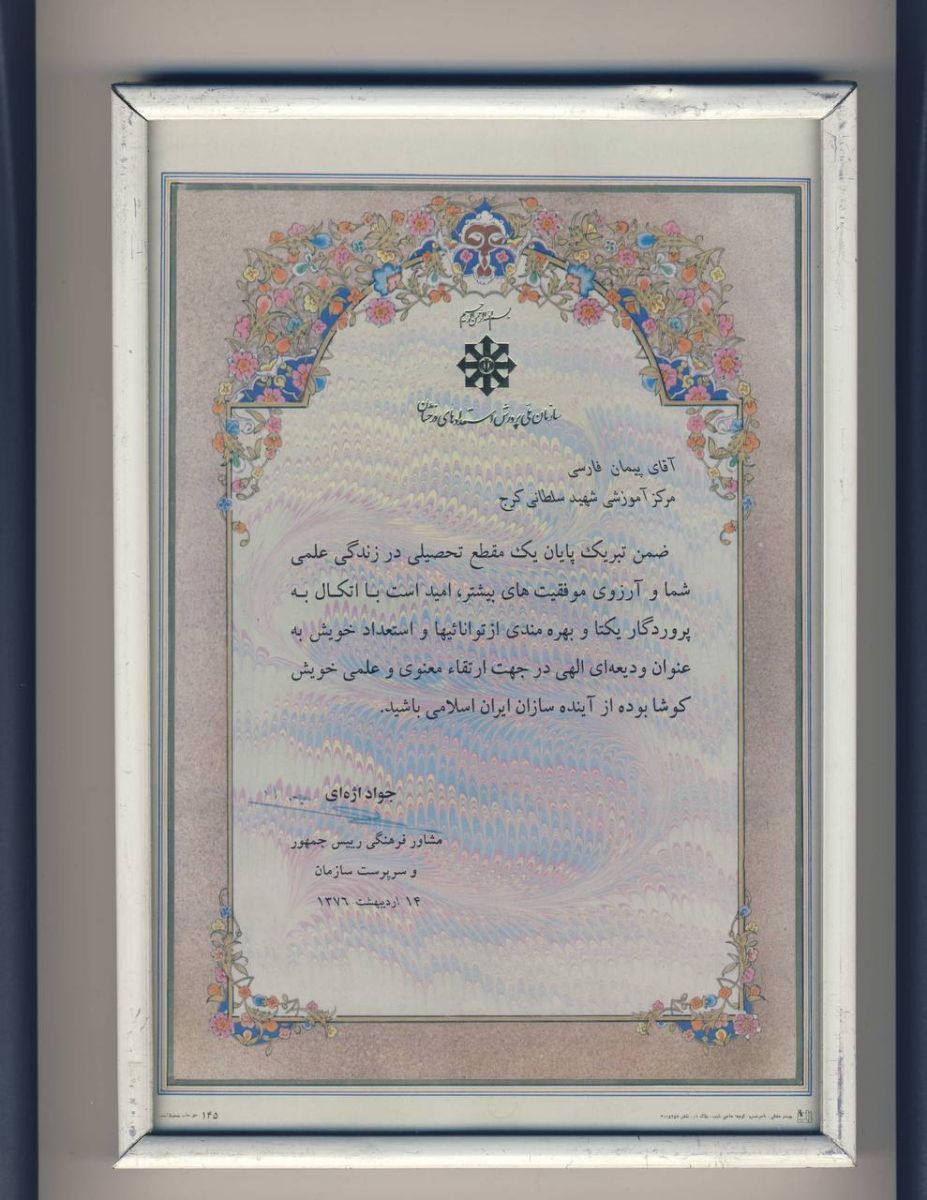 بسم الله الرحمن الرحیم
سازمان ملی پرورش استعدادهای درخشان
آقای پیمان فارسی
مرکز آموزشی شهید سلطانی کرج
ضمن تبریک پایان یک مقطع تحصیلی در زندگی علمی
شما و آرزوی موفقیت های بیشتر، امید است با اتکال به
پروردگار یکتا و بهره مندی ازتوانائیها و استعداد خویش به
عنوان ودیعه‌ای الهی در جهت ارتقاء معنوی و علمی خویش
کوشا بوده از آینده سازان ایران اسلامی باشید.
جواد اژه‌ای
مشاور فرهنگی رییس جمهور
و سرپرست سازمان
۱۴ اردیبهشت ۱۳۷۶
۱۴۵